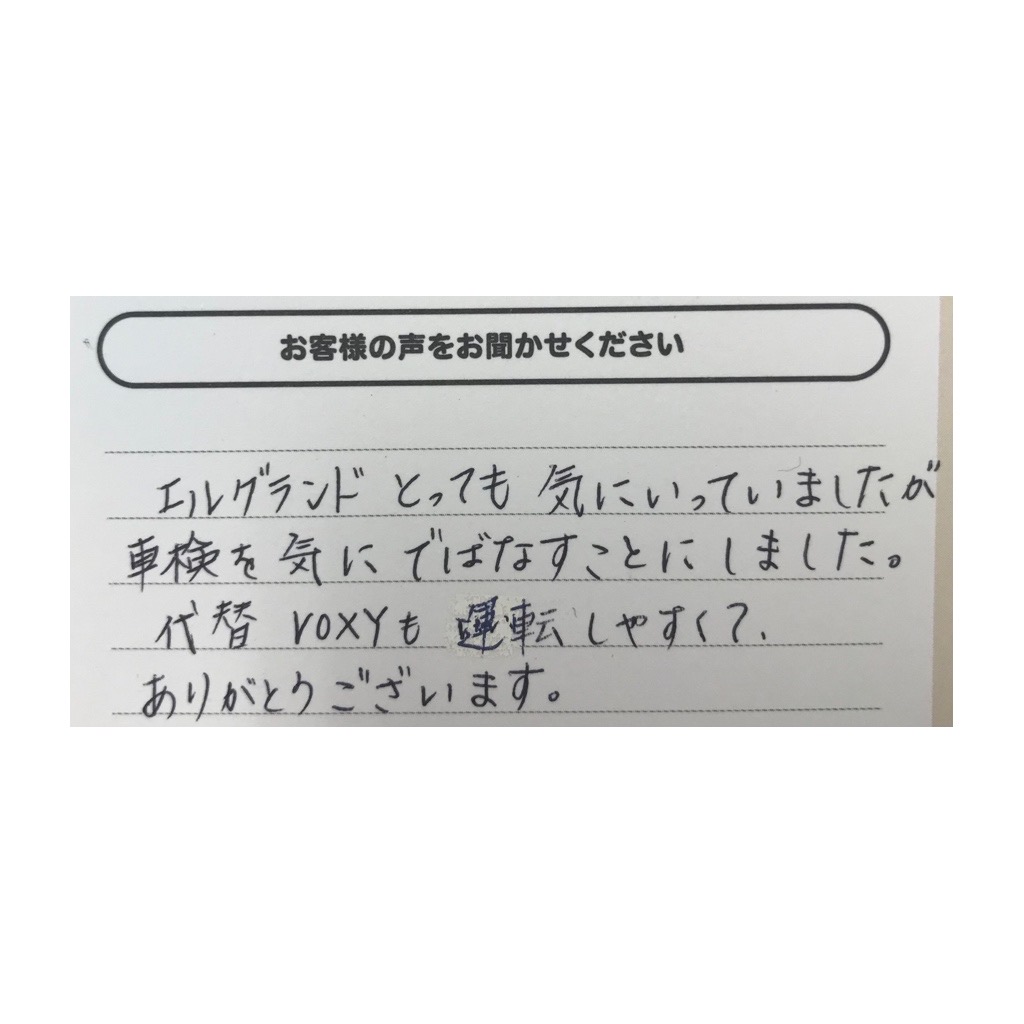 お客様の声をお聞かせください
エルグランド とっても 気にいっていましたが
車検を 気に でばなすことにしました。
代替 VOXYも 運転しやすくて、
ありがとうございます。